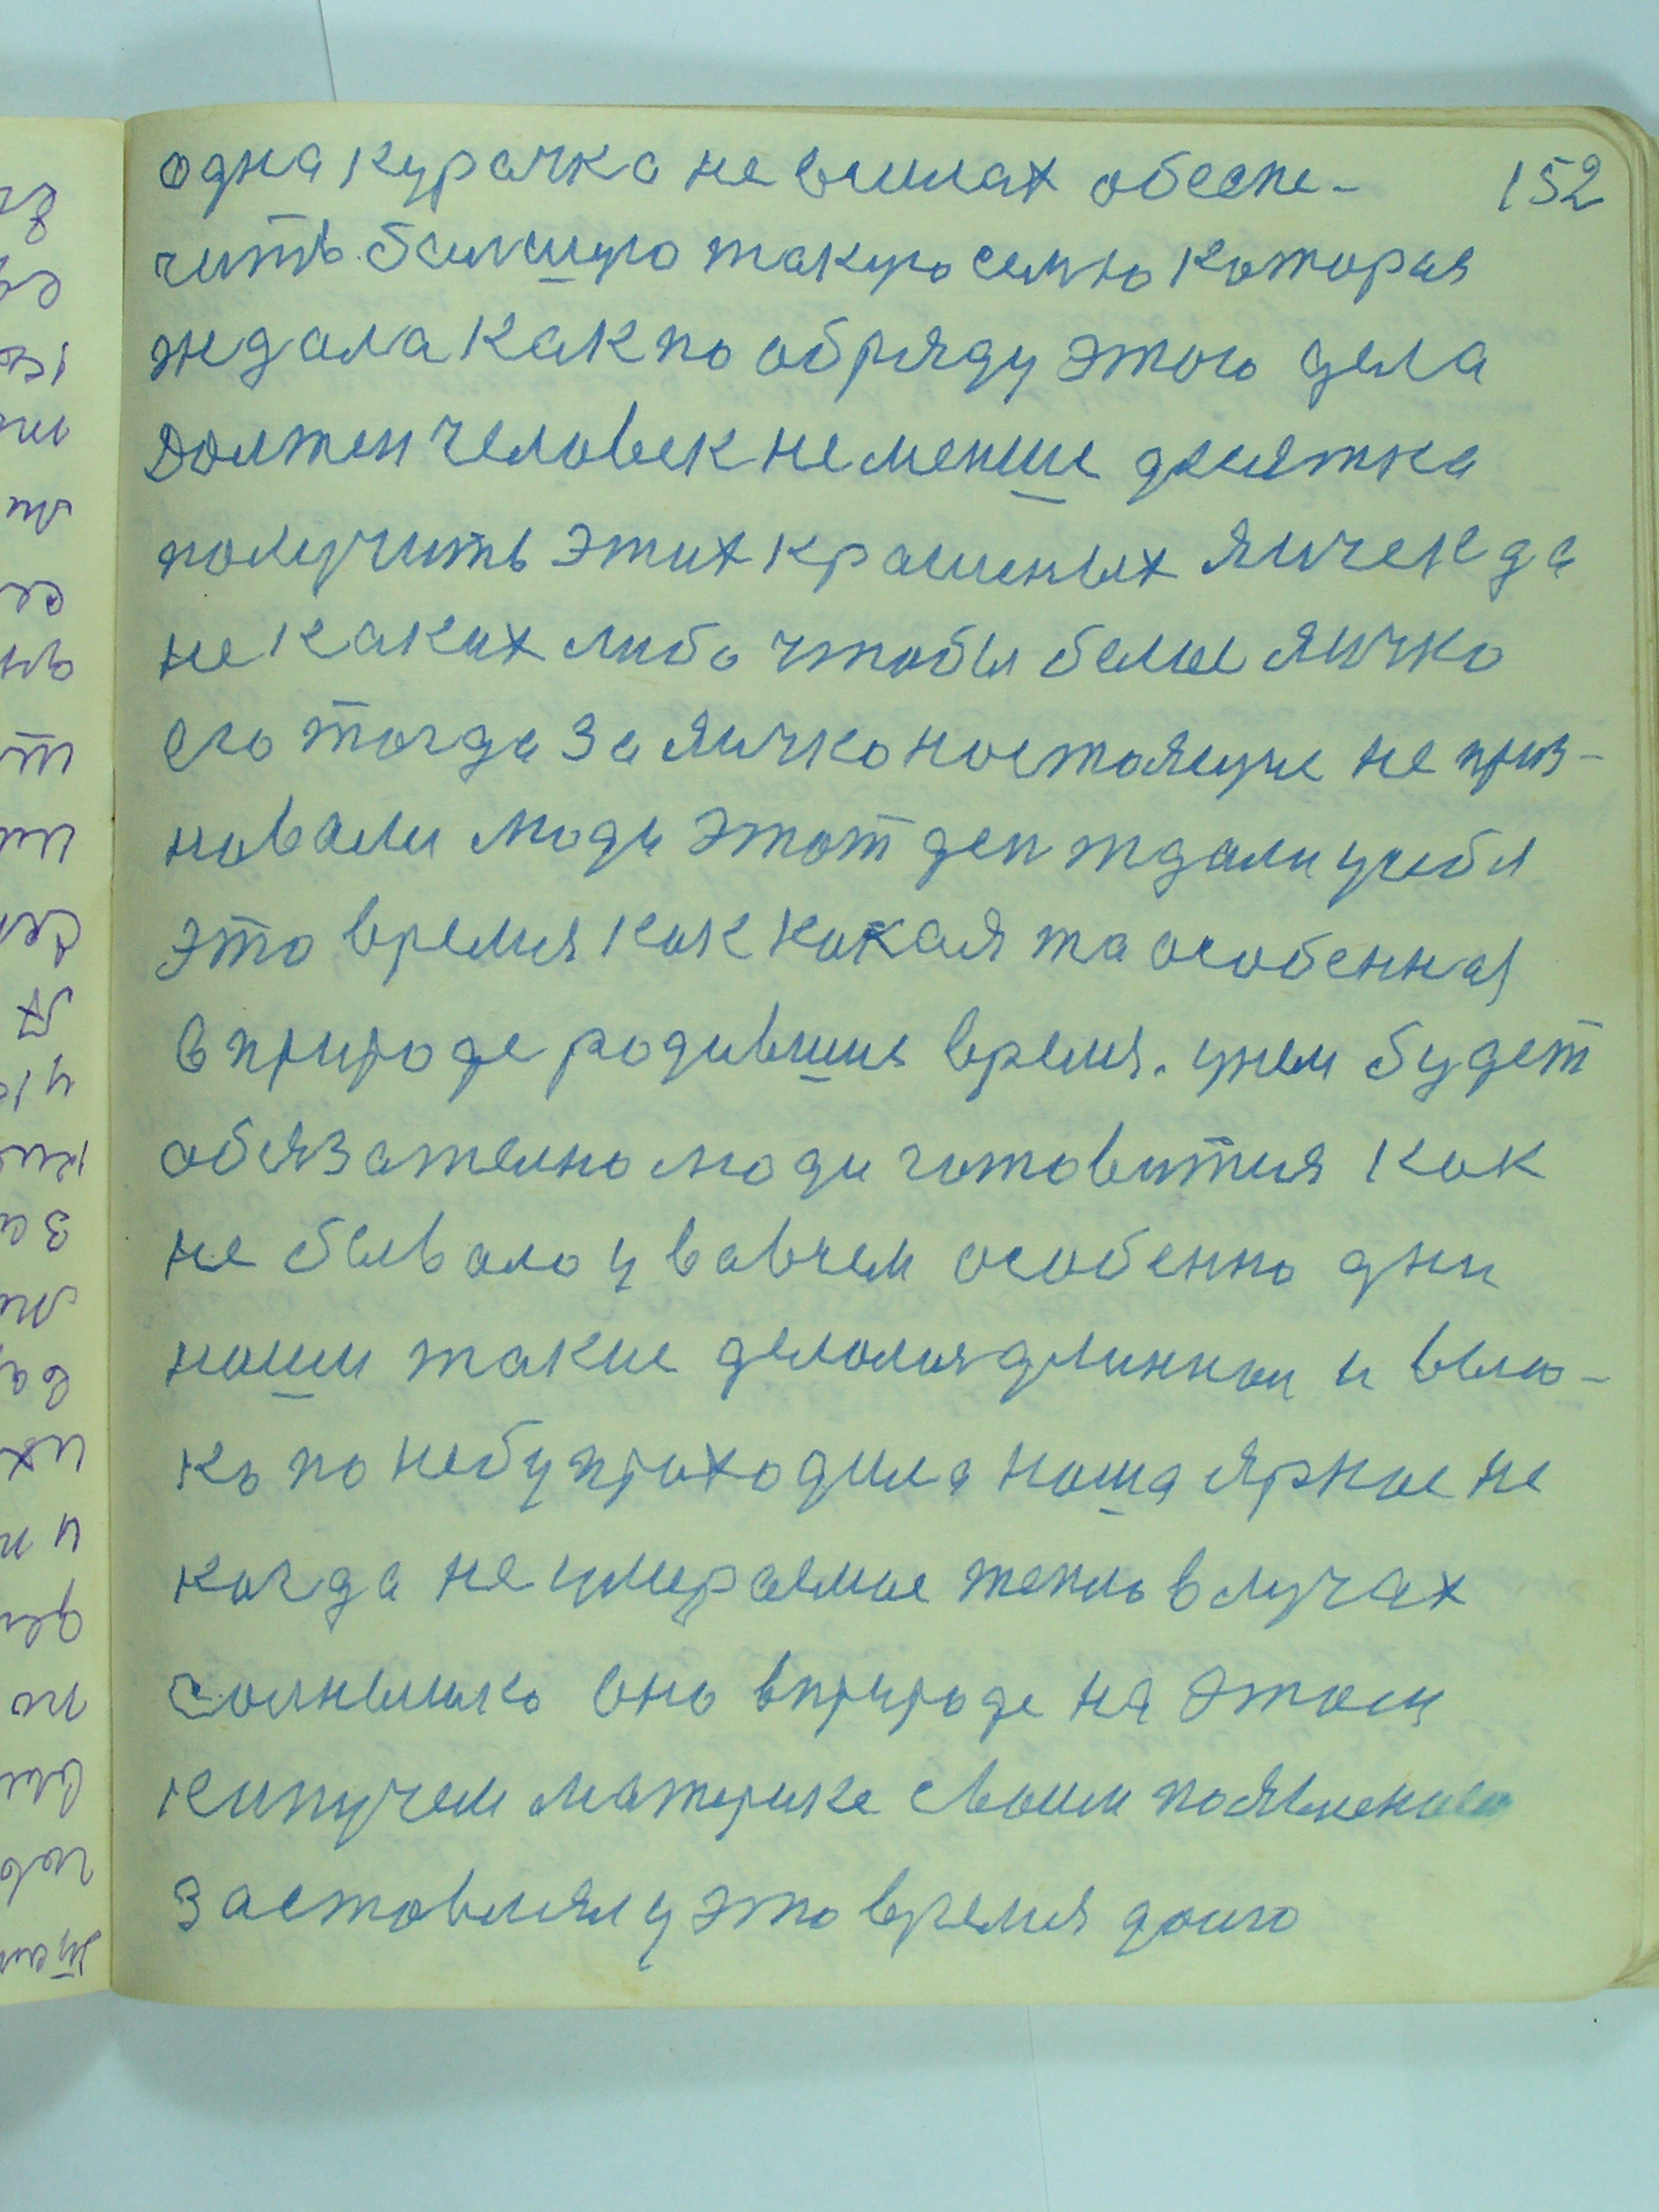 152
одна курачка не всилах обеспе-
чить балшую такую семю которая
ждала как по обряду этого дела
должен человек не менше десятка
получить этих крашеных яичек да
не каких либо чтобы белое яичко
его тогда за яичко ностоящие не приз-
новали люди этот ден ждали учебя
это время как какая та особенная
в природе родившие время. унем будет
обязателно люди готовится как
не бывало у вавчем особенно дни
наши такие делолия длиннаи и высо-
ко по небу приходила наша яркое не
когда не умираемое тепло в лучах
солнышко оно в природе на этом
кипучем материке своим появлением
заставлял у это время долго